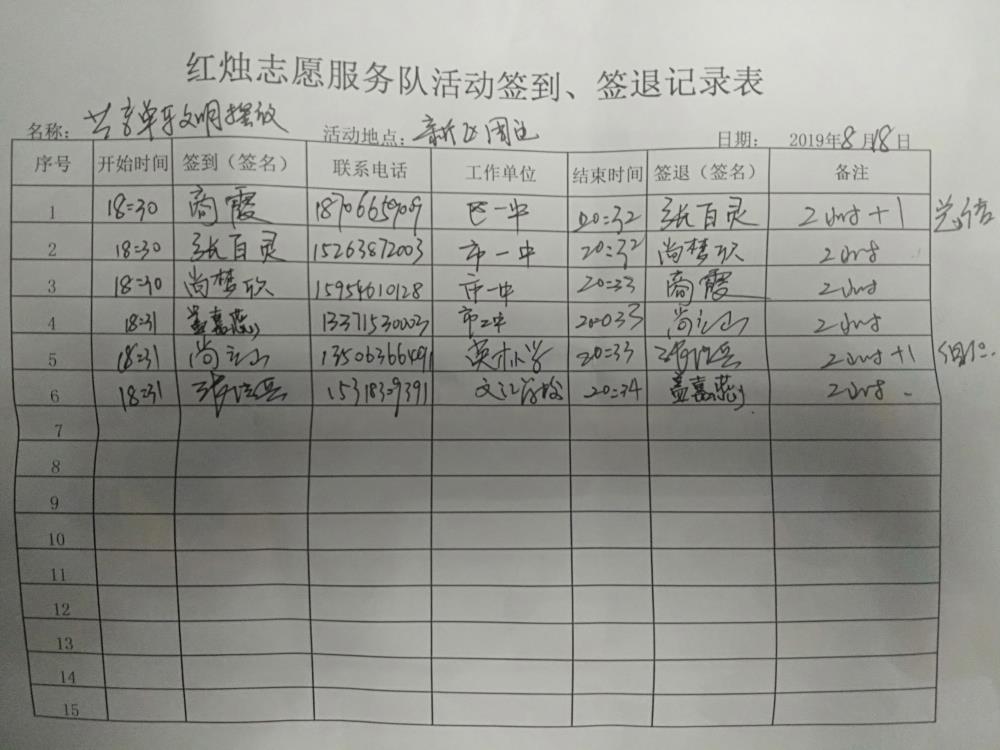 红烛志愿服务队活动签到、签退记录表
名称：共享单车文明摆放 活动地点：新区周边 日期：2019年8月18日
序号 开始时间 签到（签名） 联系电话 工作单位 结束时间 签退（签名） 备注
1 18:30 商霞 18706659909 一中 20:32 张百灵 2 +1
2 18:30 张百灵 15263872003 市一中 20:32 尚梦欣 2
3 18:30 尚梦欣 15954610128 市一中 20:33 商霞 2
4 18:31 盖嘉蕊 13371530003 20:033 尚 山 2
5 18:31 尚 山 13506366491 20:33 2 +1
6 18:31 15318309391 文 学校 20:34 盖嘉蕊 2
7
8
9
10
11
12
13
14
15